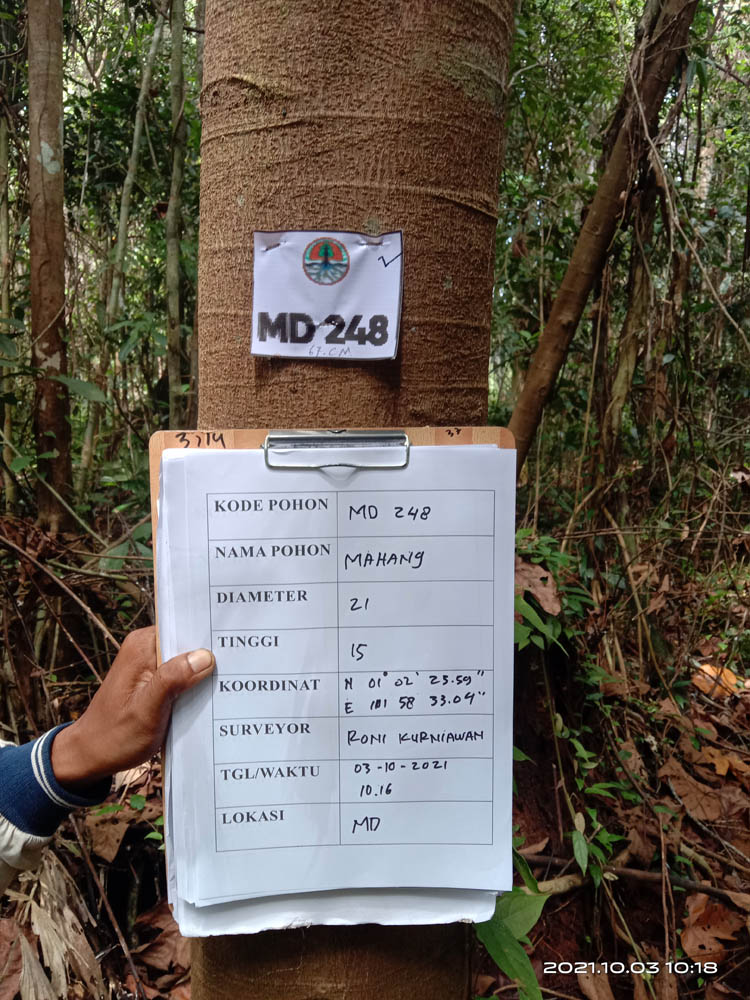 MD 248
67. CM
3,14
KODE POHON MD 248
NAMA POHON MAHANG
DIAMETER 21
TINGGI 15
KOORDINAT N 01° 02' 25.59"
E 101 58 33.04"
SURVEYOR RONI KURNIAWAN
TGL/WAKTU 03-10-2021
10.16
LOKASI MD
2021.10.03 10:18